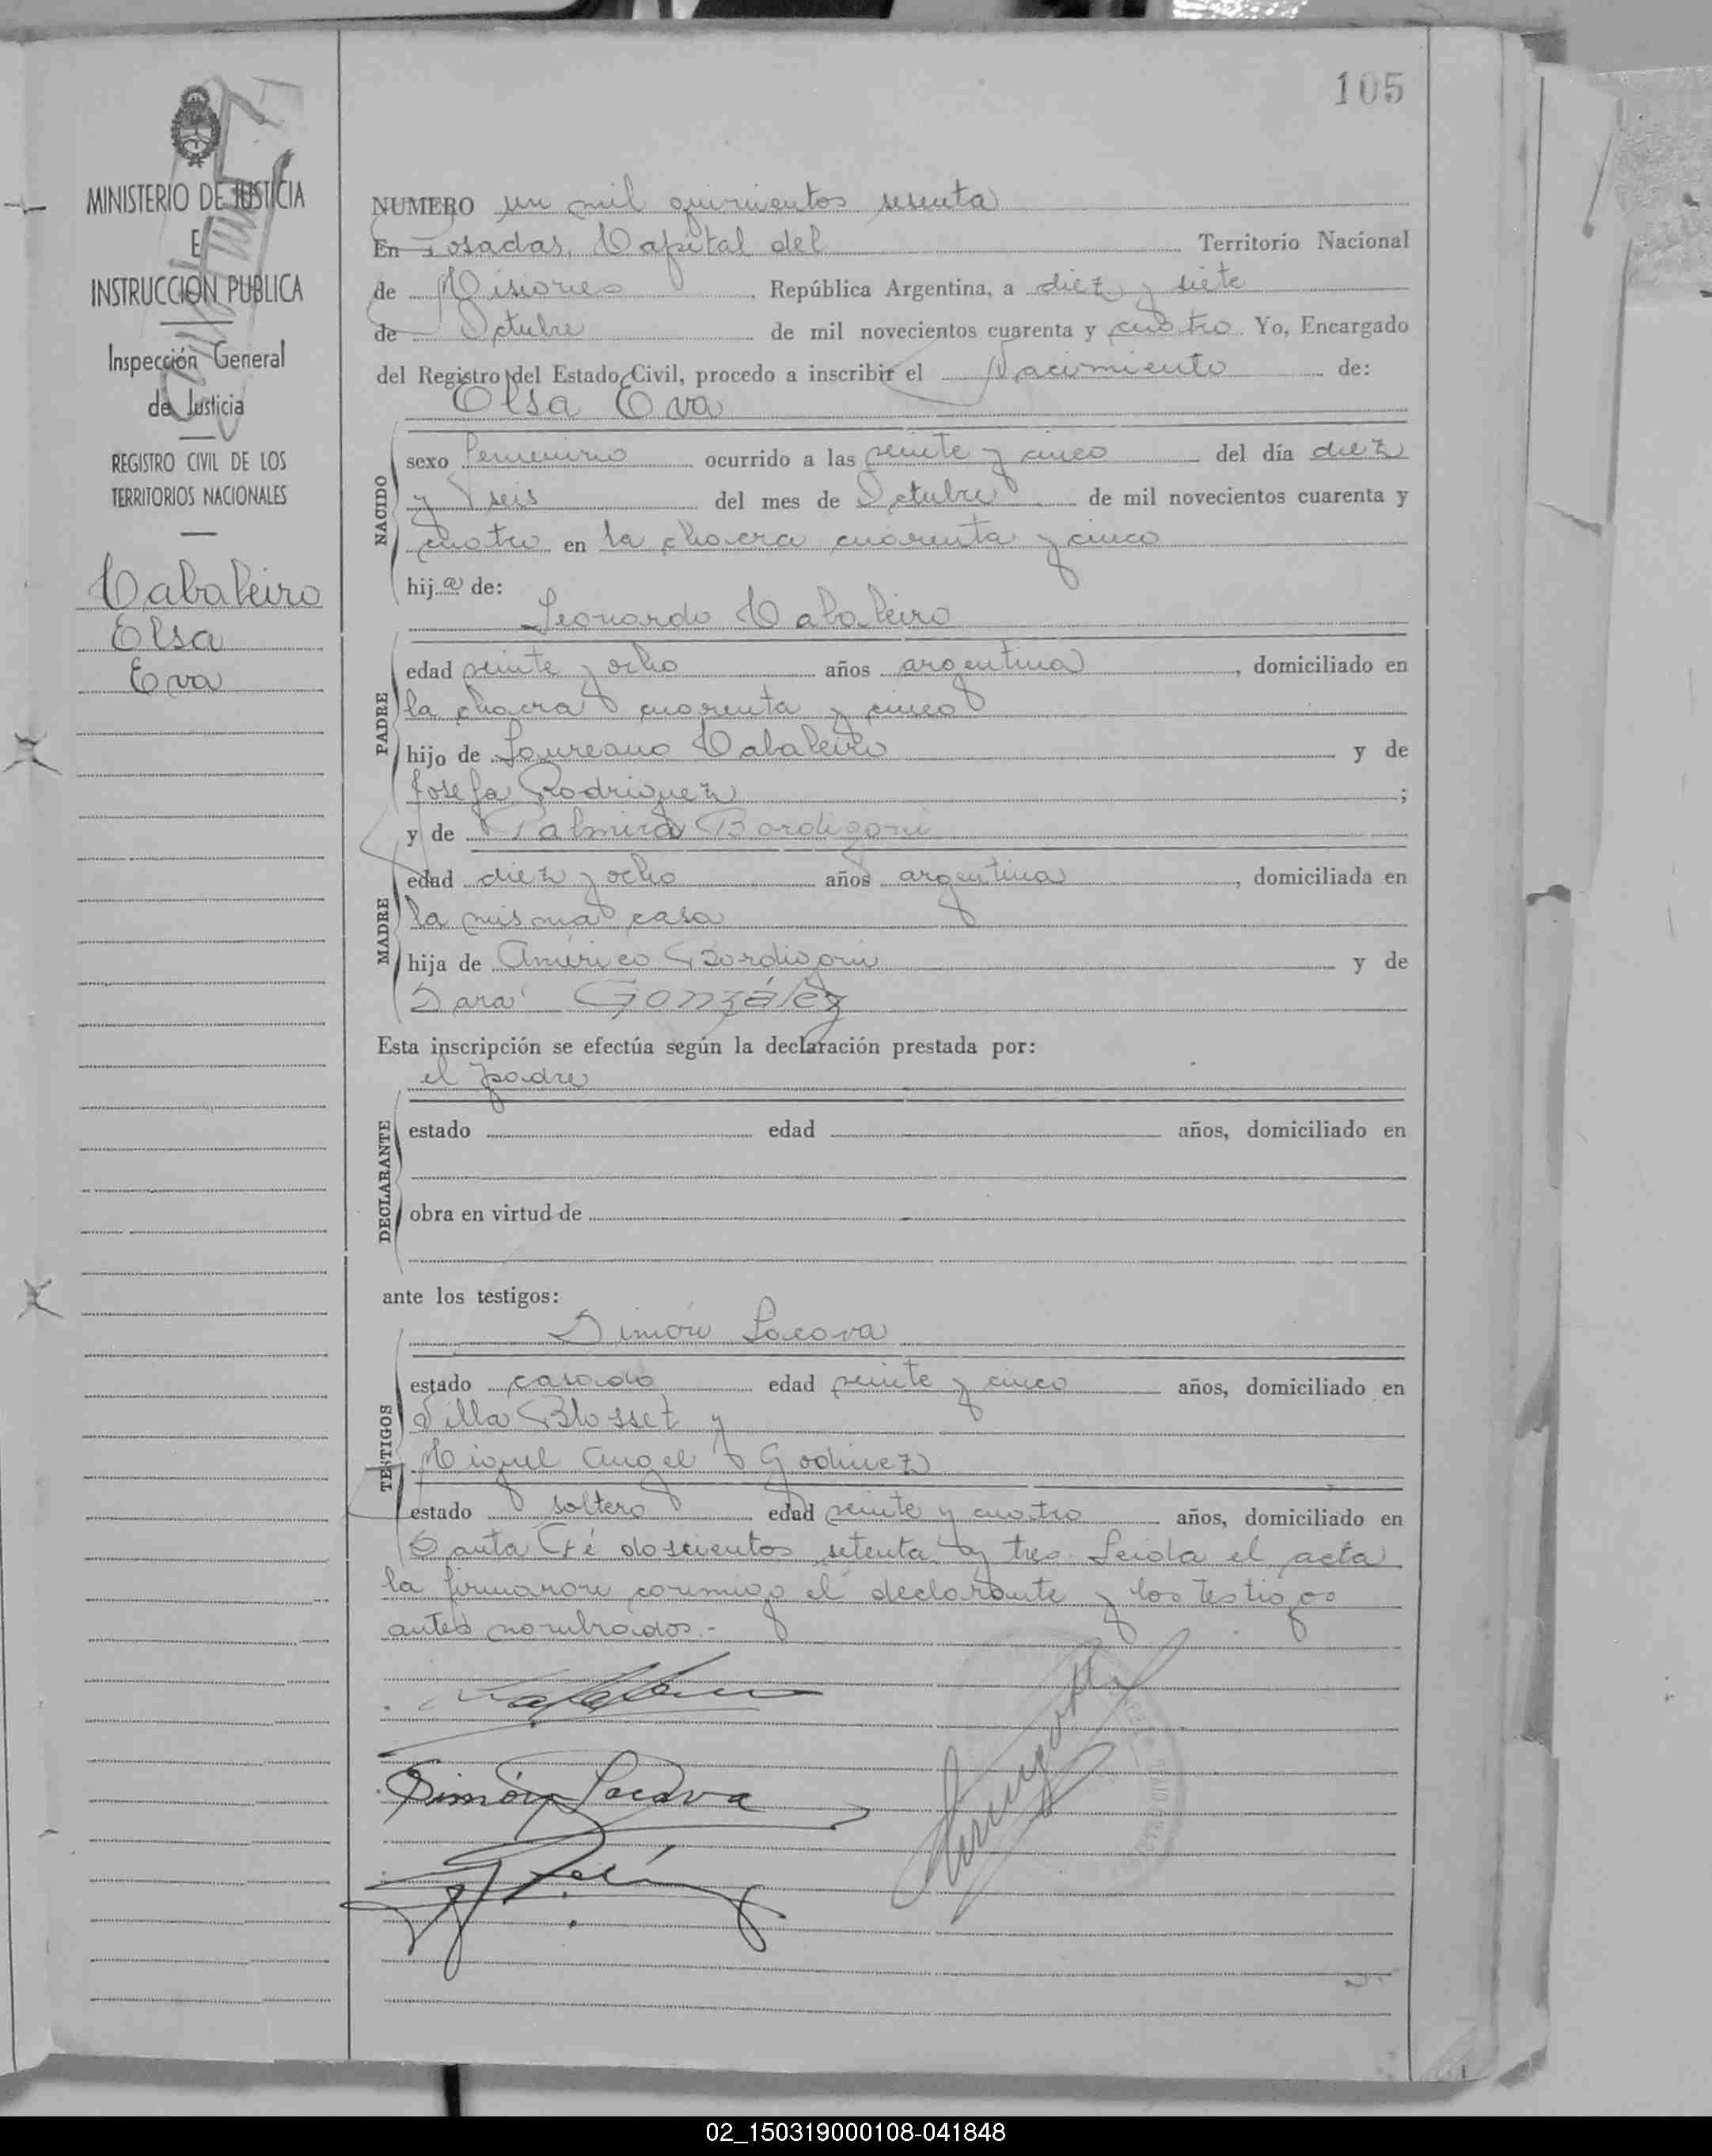 105
MINISTERIO DE JUSTICIA
E
INSTRUCCION PUBLICA
Inspección General
de Justicia
REGISTRO CIVIL DE LOS
TERRITORIOS NACIONALES
Cabaleiro
Elsa
Eva
NUMERO un mil quinientos sesenta
En Posadas, Capital del Territorio Nacional
de Misiones, República Argentina, a diez y siete
de Octubre de mil novecientos cuarenta y cuatro Yo, Encargado
del Registro del Estado Civil, procedo a inscribir el Nacimiento de:
Elsa Eva
NACIDO
sexo femenino ocurrido a las veinte y cinco del día diez
y seis del mes de Octubre de mil novecientos cuarenta y
cuatro en la chacra cuarenta y cinco
hija de:
Leonardo Cabaleiro
PADRE
edad veinte y ocho años argentina, domiciliado en
la chacra cuarenta y cinco
hijo de Laureano Cabaleiro y de
Josefa Rodriguez;
y de Palmira Bordigoni
MADRE
edad diez y ocho años argentina, domiciliada en
la misma casa
hija de Américo Bordigoni y de
Sara González
Esta inscripción se efectúa según la declaración prestada por:
el padre
DECLARANTE
estado edad años, domiciliado en
obra en virtud de
ante los testigos:
Simón Lacava
TESTIGOS
estado casado edad veinte y cinco años, domiciliado en
Villa Blosset y
Miguel Angel Godinez
estado soltero edad veinte y cuatro años, domiciliado en
Santa Fé doscientos setenta y tres. Leida el acta
la firmaron conmigo el declarante y los testigos
antes nombrados.-
Simón Lacava
02_150319000108-041848